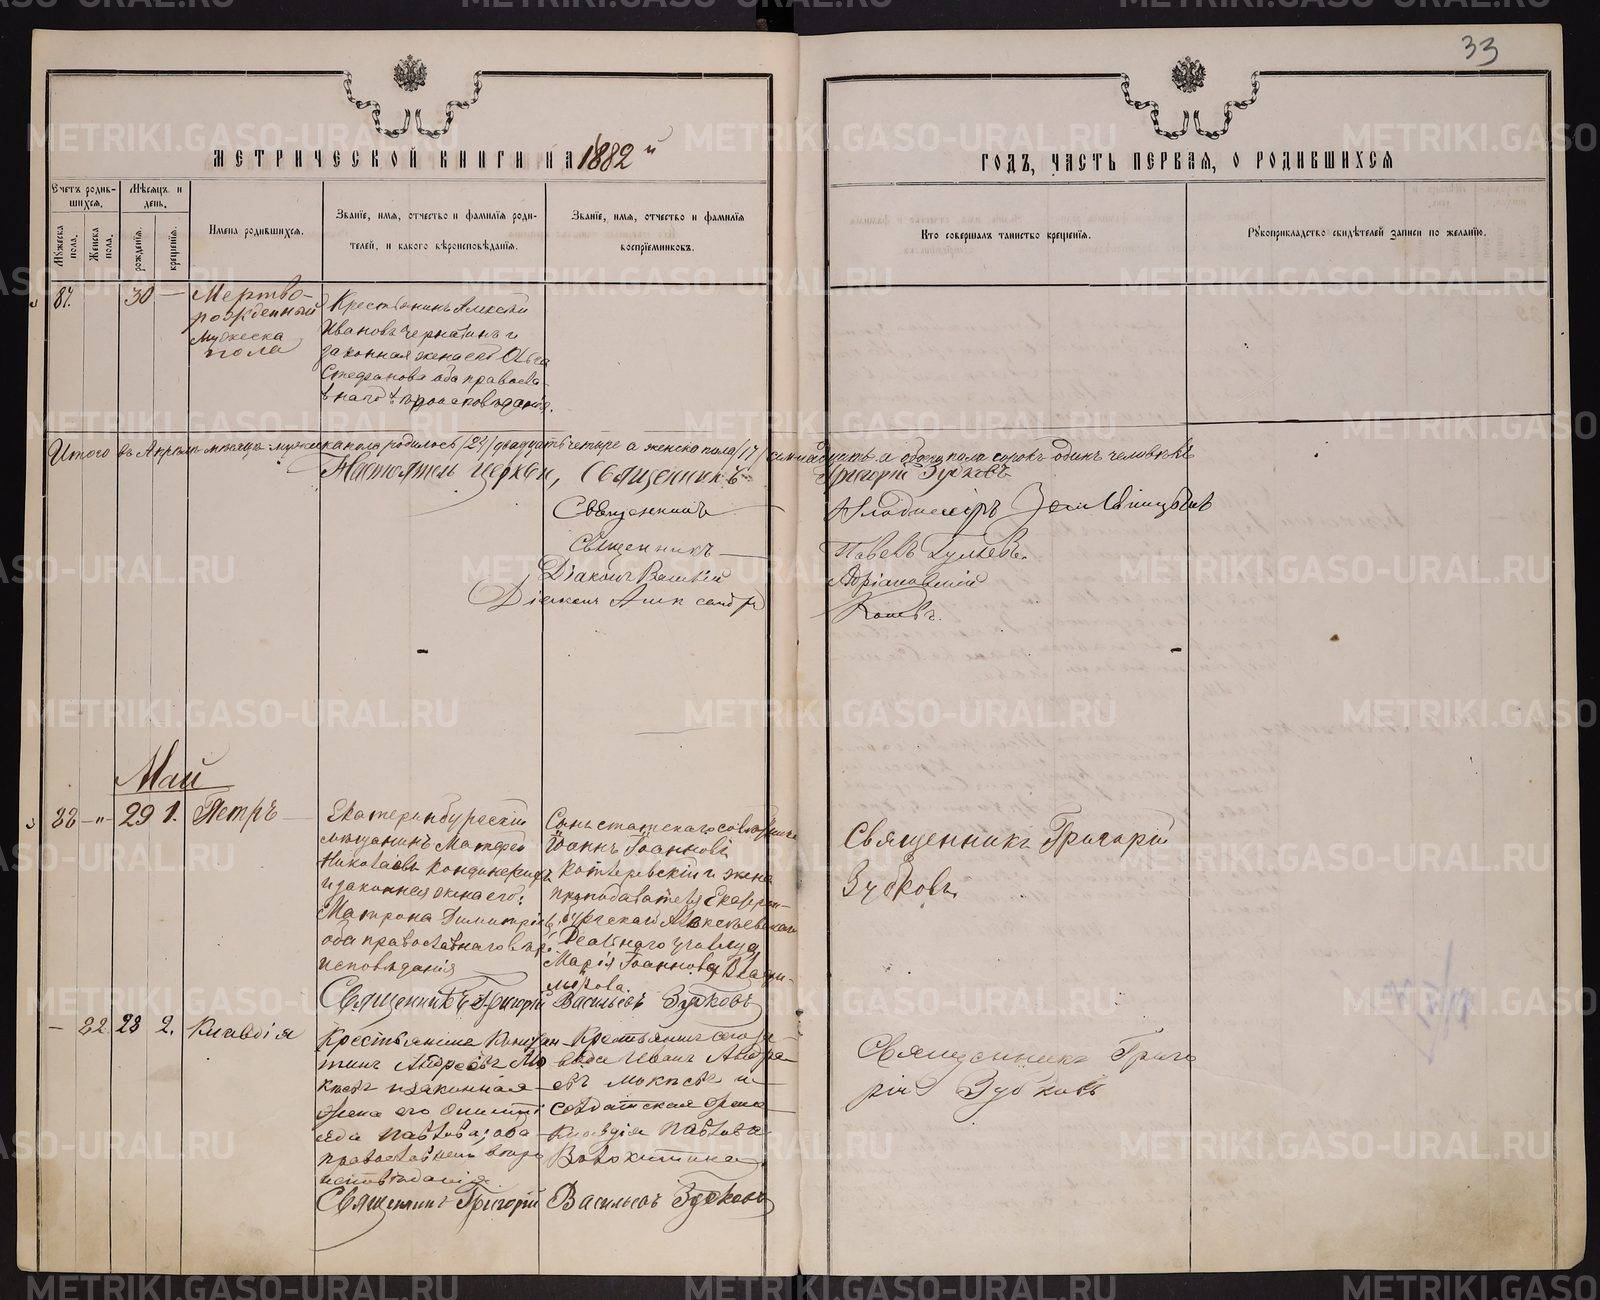 33
МЕТРИЧЕСКОЙ КНИГИ НА 1882й
ГОДЪ, ЧАСТЬ ПЕРВАЯ, О РОДИВШИХСЯ
Счетъ родив-
шихся.
Мѣсяцъ и
день.
Мужеска пола.
Женска пола.
рожденія.
крещенія.
Имена родившихся.
Званіе, имя, отчество и фамилія роди-
телей, и какого вѣроисповѣданія.
Званіе, имя, отчество и фамилія
воспріемниковъ.
Кто совершалъ таинство крещенія.
Рукоприкладство свидѣтелей записи по желанію.
87. 30 —
Мертво-
рожденный
мужеска
пола
Крестьянинъ Алексѣй
Ивановъ и
законная жена его Ольга
Стефанова оба правосла-
внаго вѣроисповѣданія.
Итого въ Апрѣлѣ мѣсяцѣ мужеска пола родилось /24/ двадцать четыре а женска пола /17/ семнадцать а обоего пола сорокъ одинъ человѣкъ
Настоятель церкви, Священникъ Григорій Зубковъ
Священникъ Владиміръ
Священникъ — Павелъ
Діаконъ
Діаконъ Александръ
Май
88 — „ — 29 1. Петръ
Екатеринбургскій
мѣщанинъ Матфей
Николаевъ
и законная жена его
Матрона Димитріева
оба православнаго вѣро-
исповѣданія
Сынъ статскаго совѣтника
Іоаннъ Іоанновъ
и жена
преподавателя Екатерин-
бургскаго Алексѣевскаго
Реальнаго училища
Марія Іоаннова Влади-
мірова.
Священникъ Григорій Васильевъ Зубковъ
Священникъ Григорій
Зубковъ
— 22 28 2. Клавдія
Крестьянинъ Констан-
тинъ Андреевъ Мо-
кѣевъ и законная
жена его Олимпі-
ада Павлова; оба
православнаго вѣро-
исповѣданія
Иванъ Андре-
евъ Мокѣевъ и
солдатская жена
Клавдія Павлова
Волокитина
Священникъ Григорій Васильевъ Зубковъ
Священникъ Григо
рій Зубковъ
METRIKI.GASO-URAL.RU